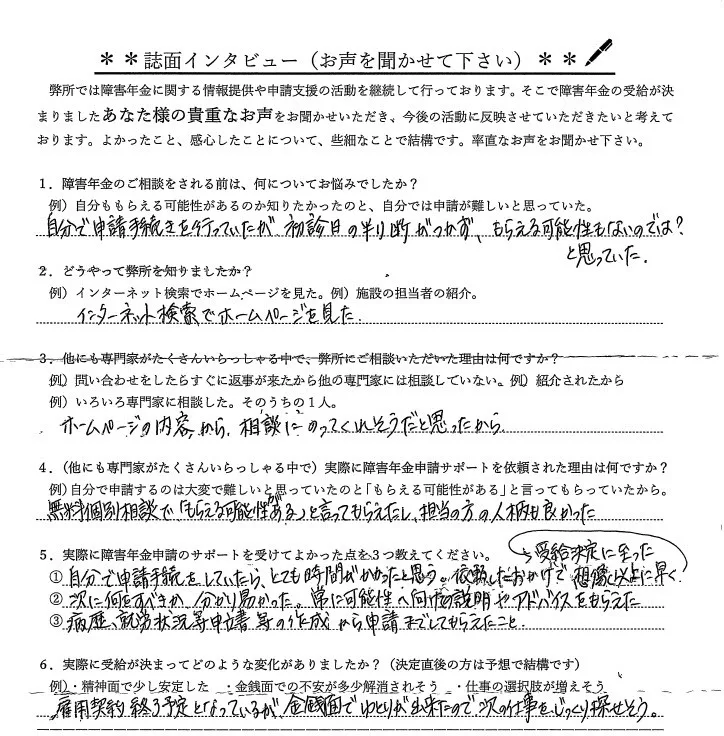 ＊＊誌面インタビュー（お声を聞かせて下さい）＊＊
弊所では障害年金に関する情報提供や申請支援の活動を継続して行っております。そこで障害年金の受給が決
まりましたあなた様の貴重なお声をお聞かせいただき、今後の活動に反映させていただきたいと考えて
おります。よかったこと、感心したことについて、些細なことで結構です。率直なお声をお聞かせ下さい。
１．障害年金のご相談をされる前は、何についてお悩みでしたか？
例）自分ももらえる可能性があるのか知りたかったのと、自分では申請が難しいと思っていた。
自分で申請手続きを行っていたが、初診日の判断がつかず、もらえる可能性もないのでは？
と思っていた。
２．どうやって弊所を知りましたか？
例）インターネット検索でホームページを見た。例）施設の担当者の紹介。
インターネット検索でホームページを見た。
３．他にも専門家がたくさんいらっしゃる中で、弊所にご相談いただいた理由は何ですか？
例）問い合わせをしたらすぐに返事が来たから他の専門家には相談していない。例）紹介されたから
例）いろいろ専門家に相談した。そのうちの１人。
ホームページの内容から、相談にのってくれそうだと思ったから
４．（他にも専門家がたくさんいらっしゃる中で）実際に障害年金申請サポートを依頼された理由は何ですか？
例）自分で申請するのは大変で難しいと思っていたのと「もらえる可能性がある」と言ってもらっていたから。
無料個別相談で、「もらえる可能性がある」と言ってもらえたし、担当の方の人柄も良かった
５．実際に障害年金申請のサポートを受けてよかった点を３つ教えてください。
①自分で申請手続をしていたら、とても時間がかかったと思う。依頼したおかげで想像以上に早く
受給決定に至った
②次に何をすべきか、分かり易かった。常に可能性へ向けた説明やアドバイスをもらえた
③病歴、就労状況等申立書等の作成から申請までしてもらえたこと。
６．実際に受給が決まってどのような変化がありましたか？（決定直後の方は予想で結構です）
例）・精神面で少し安定した　・金銭面での不安が多少解消されそう　・仕事の選択肢が増えそう
雇用契約終了予定となっているが、金銭面でゆとりが出来たので、次の仕事をじっくり探せそう。